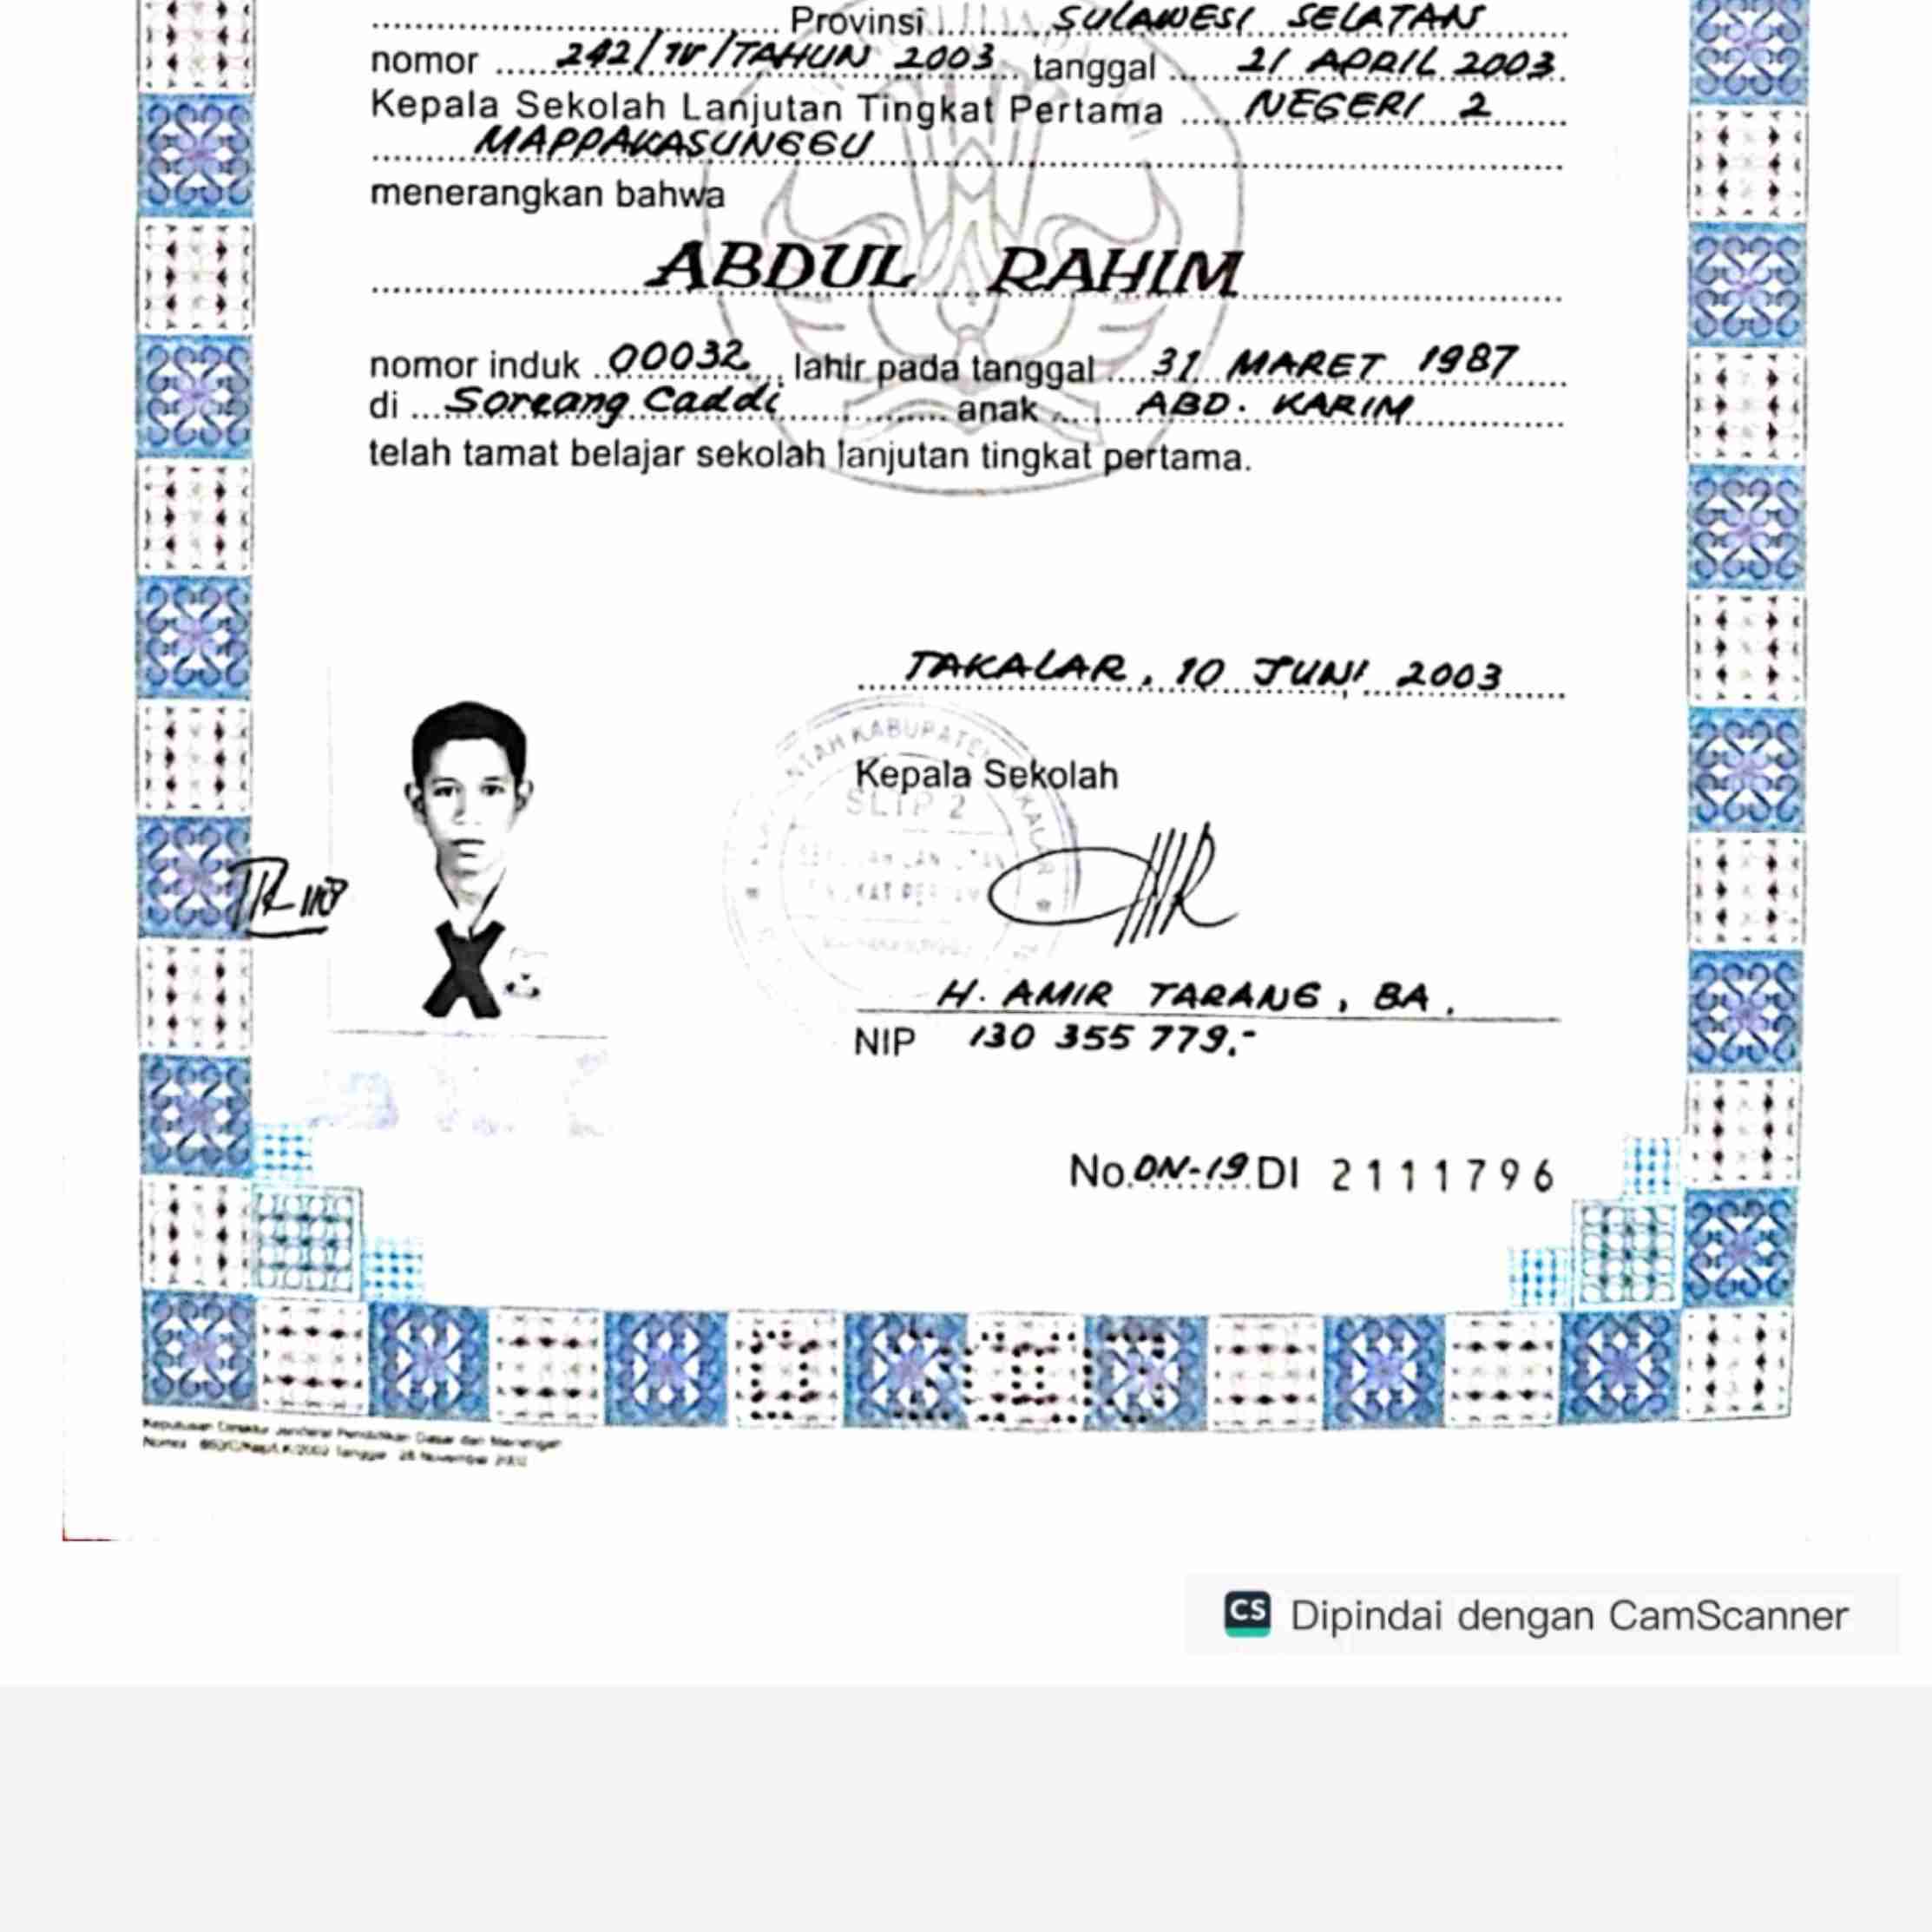 Provinsi SULAWESI SELATAN
nomor 242/IV/TAHUN 2003 tanggal 21 APRIL 2003
Kepala Sekolah Lanjutan Tingkat Pertama NEGERI 2
MAPPAKASUNGGU
menerangkan bahwa
ABDUL RAHIM
nomor induk 00032, lahir pada tanggal 31 MARET 1987
di Soreang Caddi anak ABD. KARIM
telah tamat belajar sekolah lanjutan tingkat pertama.
TAKALAR, 10 JUNI 2003
Kepala Sekolah
SLTP 2
H. AMIR TARANG, BA.
NIP 130 355 779.-
No. DN-19 DI 2111796
Keputusan Direktur Jenderal Pendidikan Dasar dan Menengah
Tanggal 26 November 2002
CS Dipindai dengan CamScanner